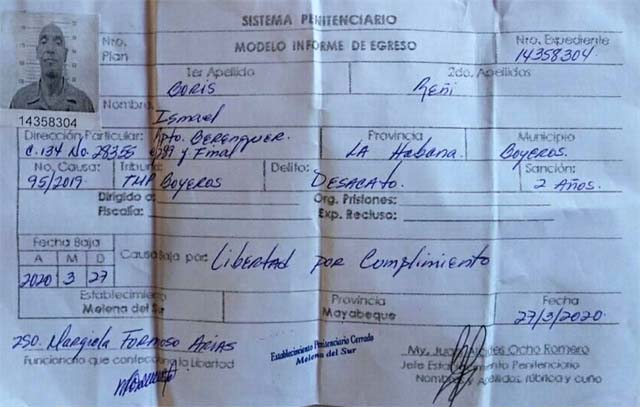 SISTEMA PENITENCIARIO
Nro. Plan MODELO INFORME DE EGRESO Nro. Expediente
14358304
1er Apellido 2do. Apellidos
BORIS Reñi
14358304 Nombre: Ismael
Dirección Particular: Apto. Berenguer. Provincia Municipio
C. 134 No. 28355 y Final La Habana. Boyeros.
No. Causa: Tribunal Delito: Sanción:
95/2019. TMP Boyeros DESACATO. 2 Años.
Dirigido a: Org. Prisiones:
Fiscalía: Exp. Recluso:
Fecha Baja
A M D Causa Baja por: Libertad por Cumplimiento
2020 3 27
Establecimiento Provincia Fecha
Melena del Sur Mayabeque 27/3/2020
2SO. Margiola Formoso Arias
Funcionario que confecciona la Libertad
Establecimiento Penitenciario Cerrado
Melena del Sur
My. Ocho Romero
Jefe Establecimiento Penitenciario
Nombre y Apellidos, rúbrica y cuño